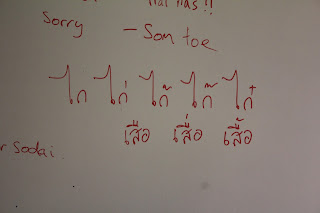 Sorry – Som toe
ไก ไก่ ไก้ ไก๊ ไก๋
เสือ เสื่อ เสื้อ
Sodai.